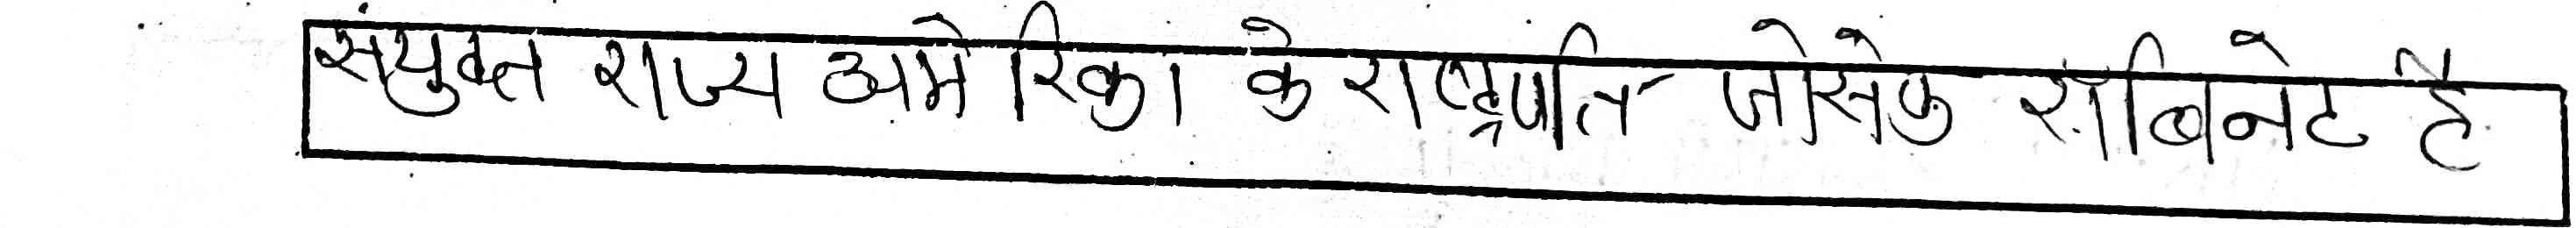 संयुक्त राज्य अमेरिका के राष्ट्रपति जोसेफ रॉबिनेट है